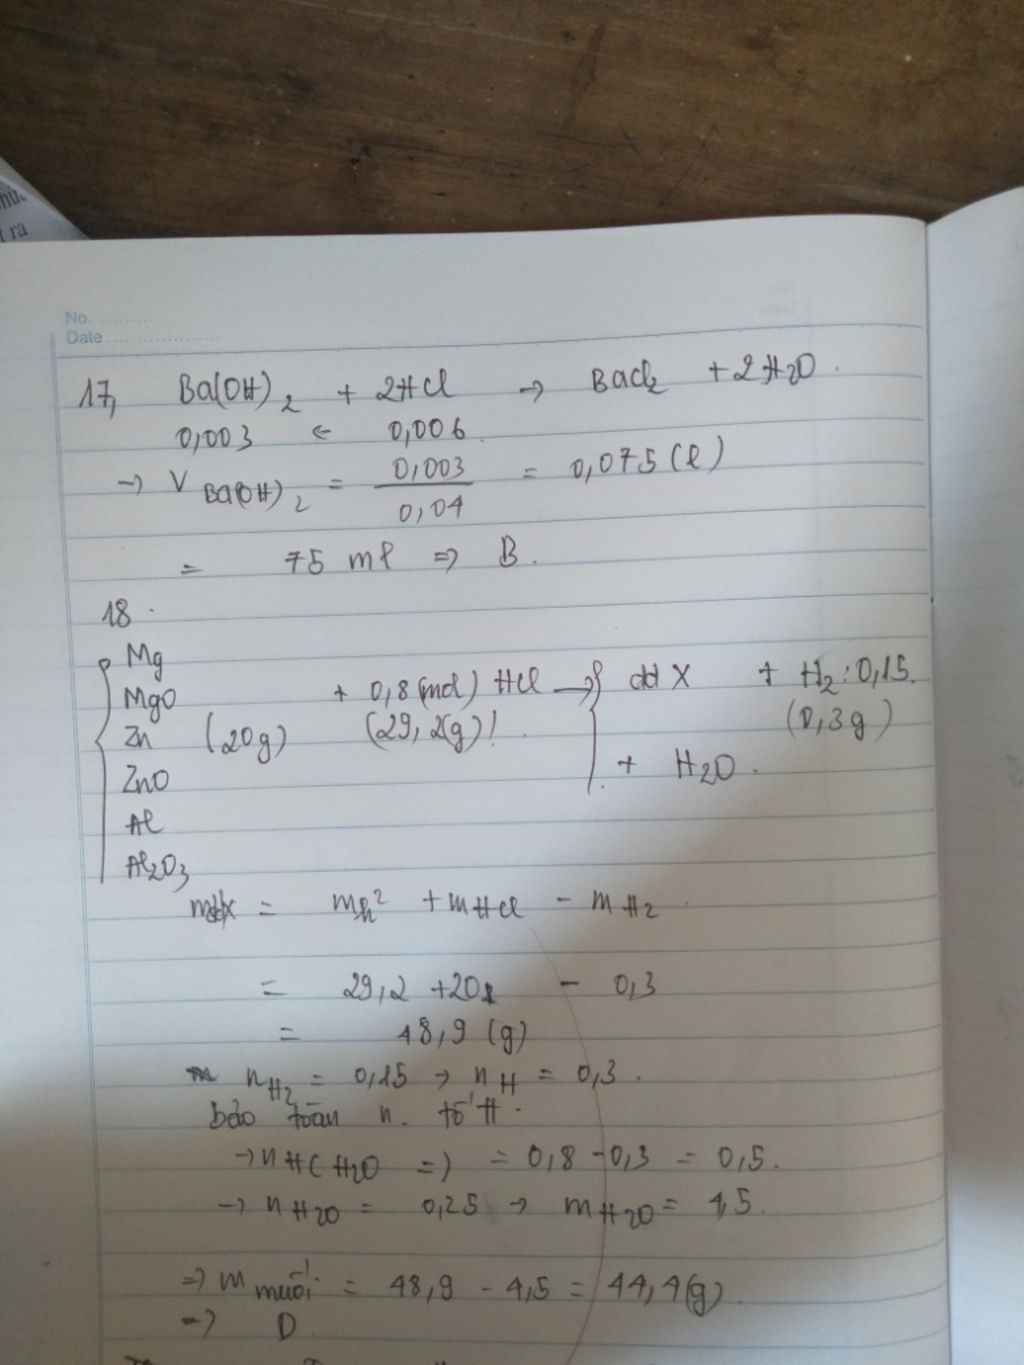 t ra
No. ..........
Date ....................
17, Ba(OH)₂ + 2HCl → BaCl₂ + 2H₂O .
0,003 ← 0,006
→ V Ba(OH)₂ = 0,003 / 0,04 = 0,075 (l)
= 75 ml ⇒ B .
18 .
Mg
MgO + 0,8 (mol) HCl → dd X + H₂ : 0,15.
Zn (20g) (29,2(g)) (0,3g)
ZnO + H₂O .
Al
Al₂O₃
mddX = mh² + mHCl - mH₂
= 29,2 + 20 - 0,3
= 48,9 (g)
nH₂ = 0,15 → nH = 0,3 .
bảo toàn n. tố H .
→ nH( H₂O =) = 0,8 - 0,3 = 0,5.
→ nH₂O = 0,25 → mH₂O = 4,5.
⇒ m muối = 48,9 - 4,5 = 44,4(g)
⇒ D